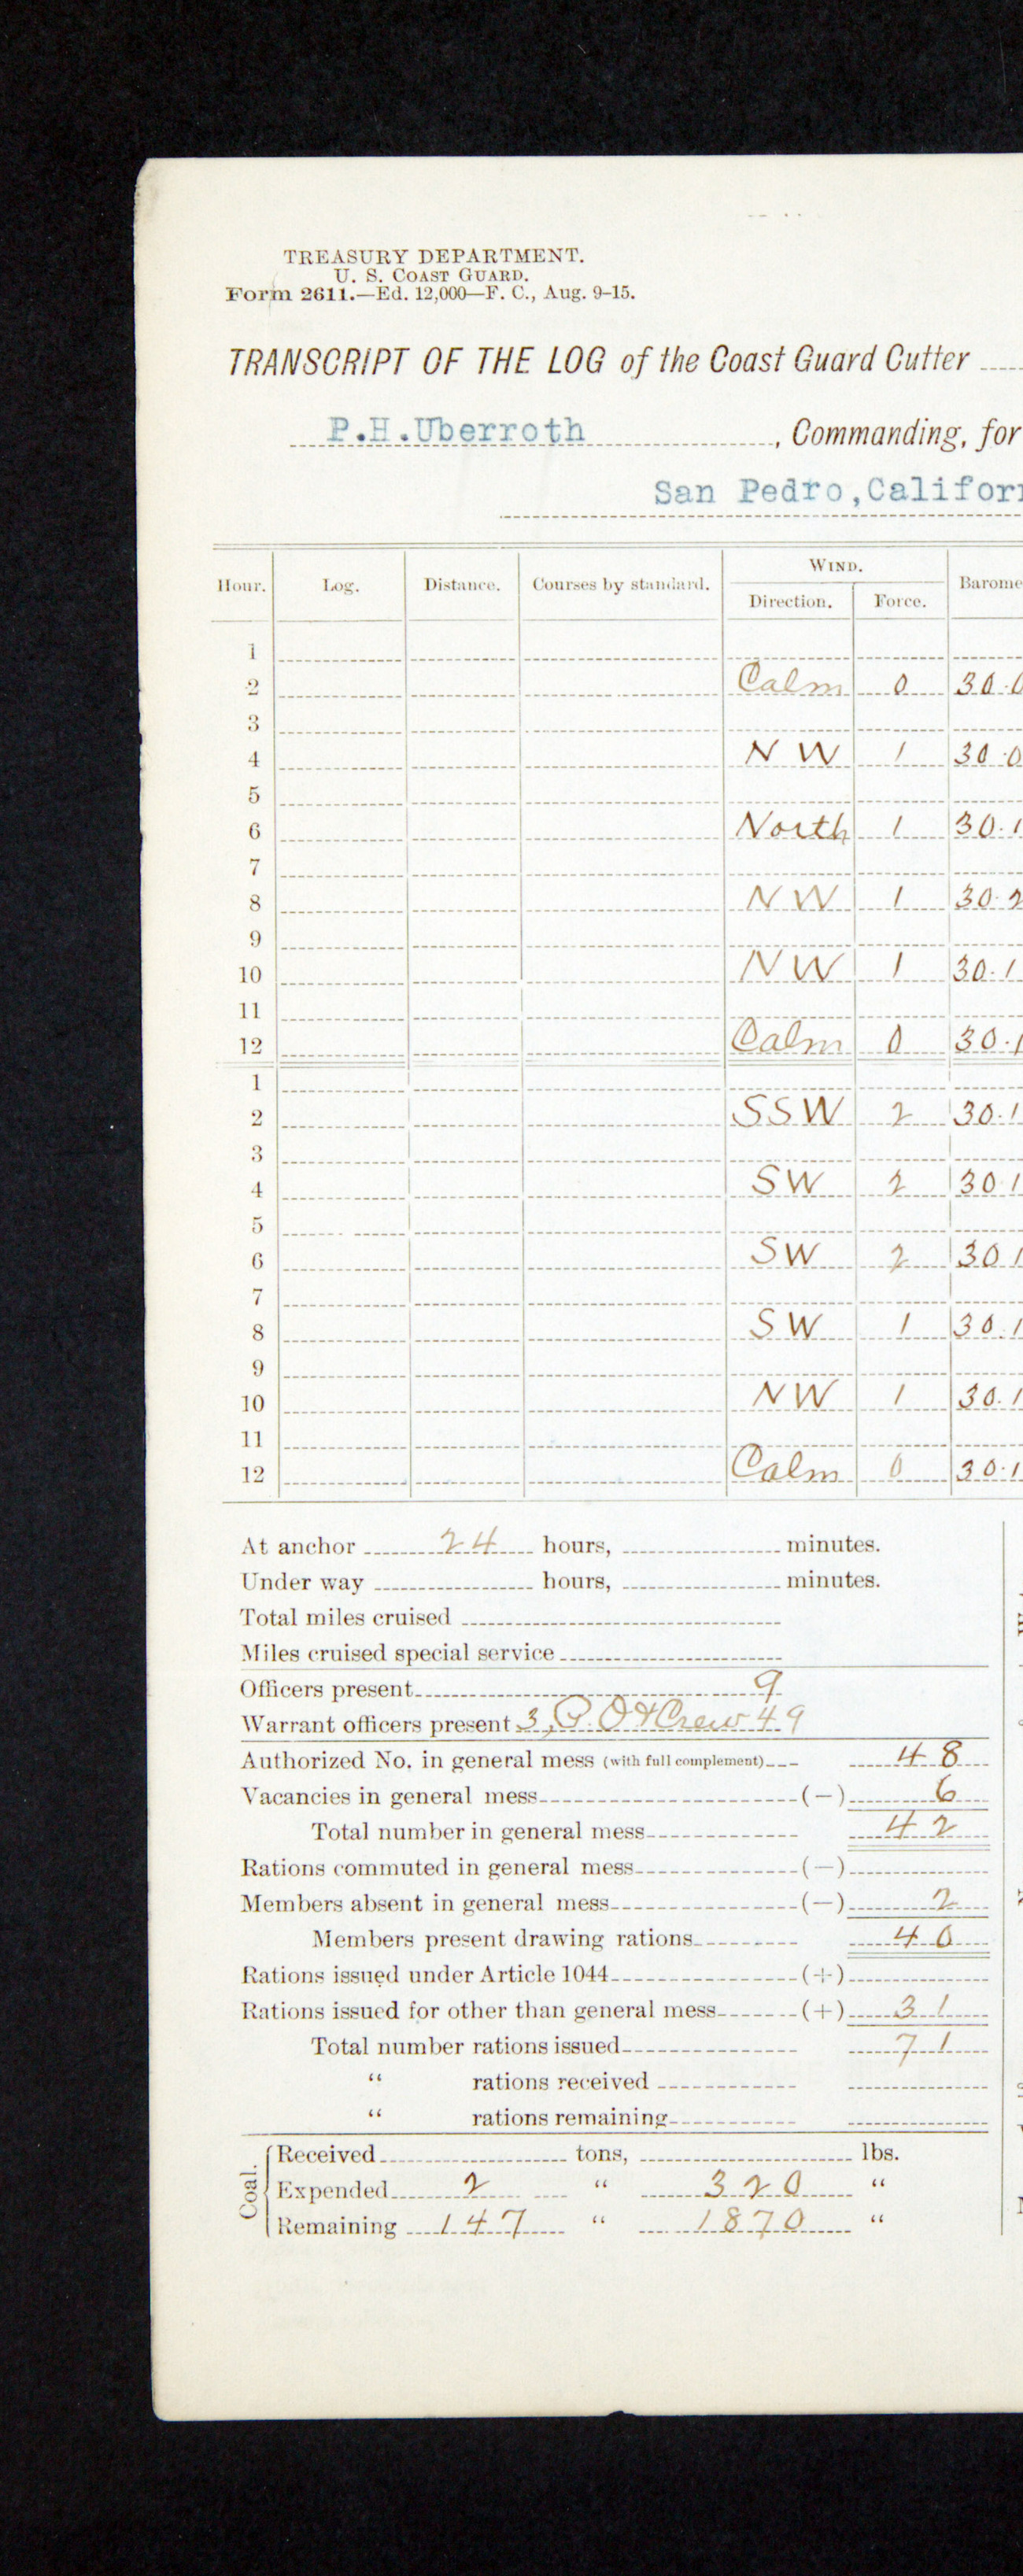 TREASURY DEPARTMENT.
U. S. COAST GUARD.
Form 2611.—Ed. 12,000—F. C., Aug. 9-15.
TRANSCRIPT OF THE LOG of the Coast Guard Cutter
P.H.Uberroth, Commanding, for
San Pedro, Califor
WIND.
Hour. Log. Distance. Courses by standard. Direction. Force. Barome
1
2 Calm 0 30.0
3
4 NW 1 30.0
5
6 North 1 30.1
7
8 NW 1 30.2
9
10 NW 1 30.1
11
12 Calm 0 30.1
1
2 SSW 2 30.1
3
4 SW 2 30.1
5
6 SW 2 30.1
7
8 SW 1 30.1
9
10 NW 1 30.1
11
12 Calm 0 30.1
At anchor 24 hours, minutes.
Under way hours, minutes.
Total miles cruised
Miles cruised special service
Officers present 9
Warrant officers present 3, P.O & Crew 49
Authorized No. in general mess (with full complement) 48
Vacancies in general mess (—) 6
Total number in general mess 42
Rations commuted in general mess (—)
Members absent in general mess (—) 2
Members present drawing rations 40
Rations issued under Article 1044 (+)
Rations issued for other than general mess (+) 31
Total number rations issued 71
“ rations received
“ rations remaining
Coal.
Received tons, lbs.
Expended 2 “ 320 “
Remaining 147 “ 1870 “